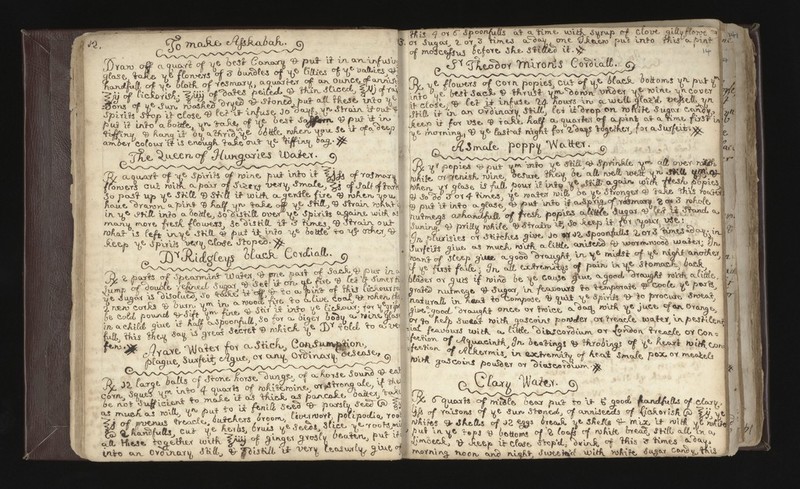 12.
To make Askabah.
Draw off a quart of ye best Canary & put it in an infusing
glass, take ye flowers of 2 bundles of ye lillies of ye vallies
handfull of ye bloth of rosmary, a quarter of an ounce of
of lickorish, of dates peiled & thin sliced,
stons of ye sun washed dryed & stoned, put all these into ye
spirits stop it close & let it infuse 10 days, ye strain it out
put it into a botle, yn take of ye best saffern & put it in
tiffiny, & hang it by a thrid, ye botle when you se it of a deep
amber colour it is enough take out ye tiffiny bag.
The Queen of Hungaries Water.
a quart of ye spirits of wine put into it of rosmary
flowers cut with a pair of sizers very small, of salt of
so past up ye still & still it with a gentle fire & when you
have drawn a pint & half yn take off ye still, & strain what
in ye still into a botle, so distill over ye spirits againe with as
many more fresh flowers, so distill it 3 times & strain out
what is left in ye still & put it into ye botle to ye other, &
keep ye spirits very close stoped.
Dr Ridgleys black Cordiall.
2 parts of spearmint water & one part of sack & put in a
lump of double refined sugar & set it on ye fire & let it simer
ye sugar is disolued, so take it off & to a pint of this lickour
2 new corks & burn ym in a wood fire to a liue coal & when
be cold pound & sift ym fine & stir it into ye lickour: for
in a child giue it half a spoonfull, so for a biger body, a wine glass
full, this they say is great secret & which ye Dr told to a
A rare Water for a Stich, Consumption,
plague, surfeit Ague, or any ordinary disease.
12 large balls of stone horse dunge, of a horse sound &
corn, squis ym into 4 quarts of whitewine or strong ale, if
be not sufficient to make it as thick as pancake batter, take
as much as will, yn put to it fenill seed & parsly seed
of pivenus treacle, butchers broom, liverwort, polipodie,
2 handfulls, cut ye herbs, bruis ye seeds, slice ye roots,
all these together with of ginger grosly beaten, put it
into an ordinary still, & distill it very leasurly, giue
this 4 or 5 spoonfulls at a time with syrup of clove gillyflowr
or sugar, 2 or 3 times a day, one I knew put into this a pint
of moscessus before she stilled it.
14
Sr Theodor Mirons Cordiall.
ye flowers of corn popies, cut of ye black bottoms yn put
into ye best sack & thrust ym down when ye wine yn cover
it close, & let it infuse 24 hours in a well glazd vessell yn
still it in an ordinary still, let it drop on white sugar candy,
keep it for use & take half a quarter of a pint at a time first in
ye morning, & ye last at night for 2 days together, for a surfeit.
A small poppy Watter.
ye popies & put ym into ye still & sprinkle ym all over with
white or renish wine, besure they be all well wet yn still
when ye glass is full pour it into ye still again with fresh popies
& so do 3 or 4 times, ye water will be ye stronger & take this water
& put it into a glass, & put into it a sprig of rosmary 2 or 3 whole
nutmegs a handfull of fresh popies a litle sugar & let it stand a
suning, & prilly while & strain it, so keep it for your use.
In plurisies or stitches give 10 or 12 spoonfulls 2 or 3 times a day, in
surfeits giue as much with a litle aniseed & wormwood water, In
want of sleep giue a good draught, in ye midst of ye night another,
if ye first faile, In all extremitys of pain in ye stomack, back
blader or guts if wind be ye cause giue a good draught with a litle,
grated nutmeg & sugar, in feavours to temperate or coole ye parts,
naturall in heat to compose & quit ye spirits & to procure sweat,
give good draught once or twice a day, with ye juce of an orange,
or to help sweat with gascoins powder or treacle water, in pestilent
iall feavours with a litle diascordium or London treacle or Con=
fection of Hyacinth, In beatings & throbings of ye heart with con
fection of Alkermis, in extremity of heat small pox or measels
with gascoins powder or diascordium.
Clary Water.
6 quarts of midle bear put to it 6 good handfulls of clary,
of raisons of ye sun stoned, of anniseeds & lickorish
whites & shells of 12 eggs break ye shells & mix it with ye whites
put in ye tops & bottoms of 2 loaf of white bread, still all in a
limbeck, & keep it close stop'd, drink of this 3 times a day,
morning noon and night, sweeten'd with white sugar candy, this